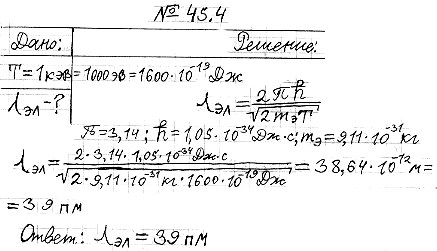 № 45.4
Дано: Решение:
T = 1 кэв = 1000 эв = 1600·10⁻¹⁹ Дж
λэл - ? λэл = 2πħ / √(2mэT)
π = 3,14; ħ = 1,05·10⁻³⁴ Дж·с; mэ = 9,11·10⁻³¹ кг
λэл = 2·3,14·1,05·10⁻³⁴ Дж·с / √(2·9,11·10⁻³¹ кг·1600·10⁻¹⁹ Дж) = 38,64·10⁻¹² м =
= 39 пм
Ответ: λэл = 39 пм